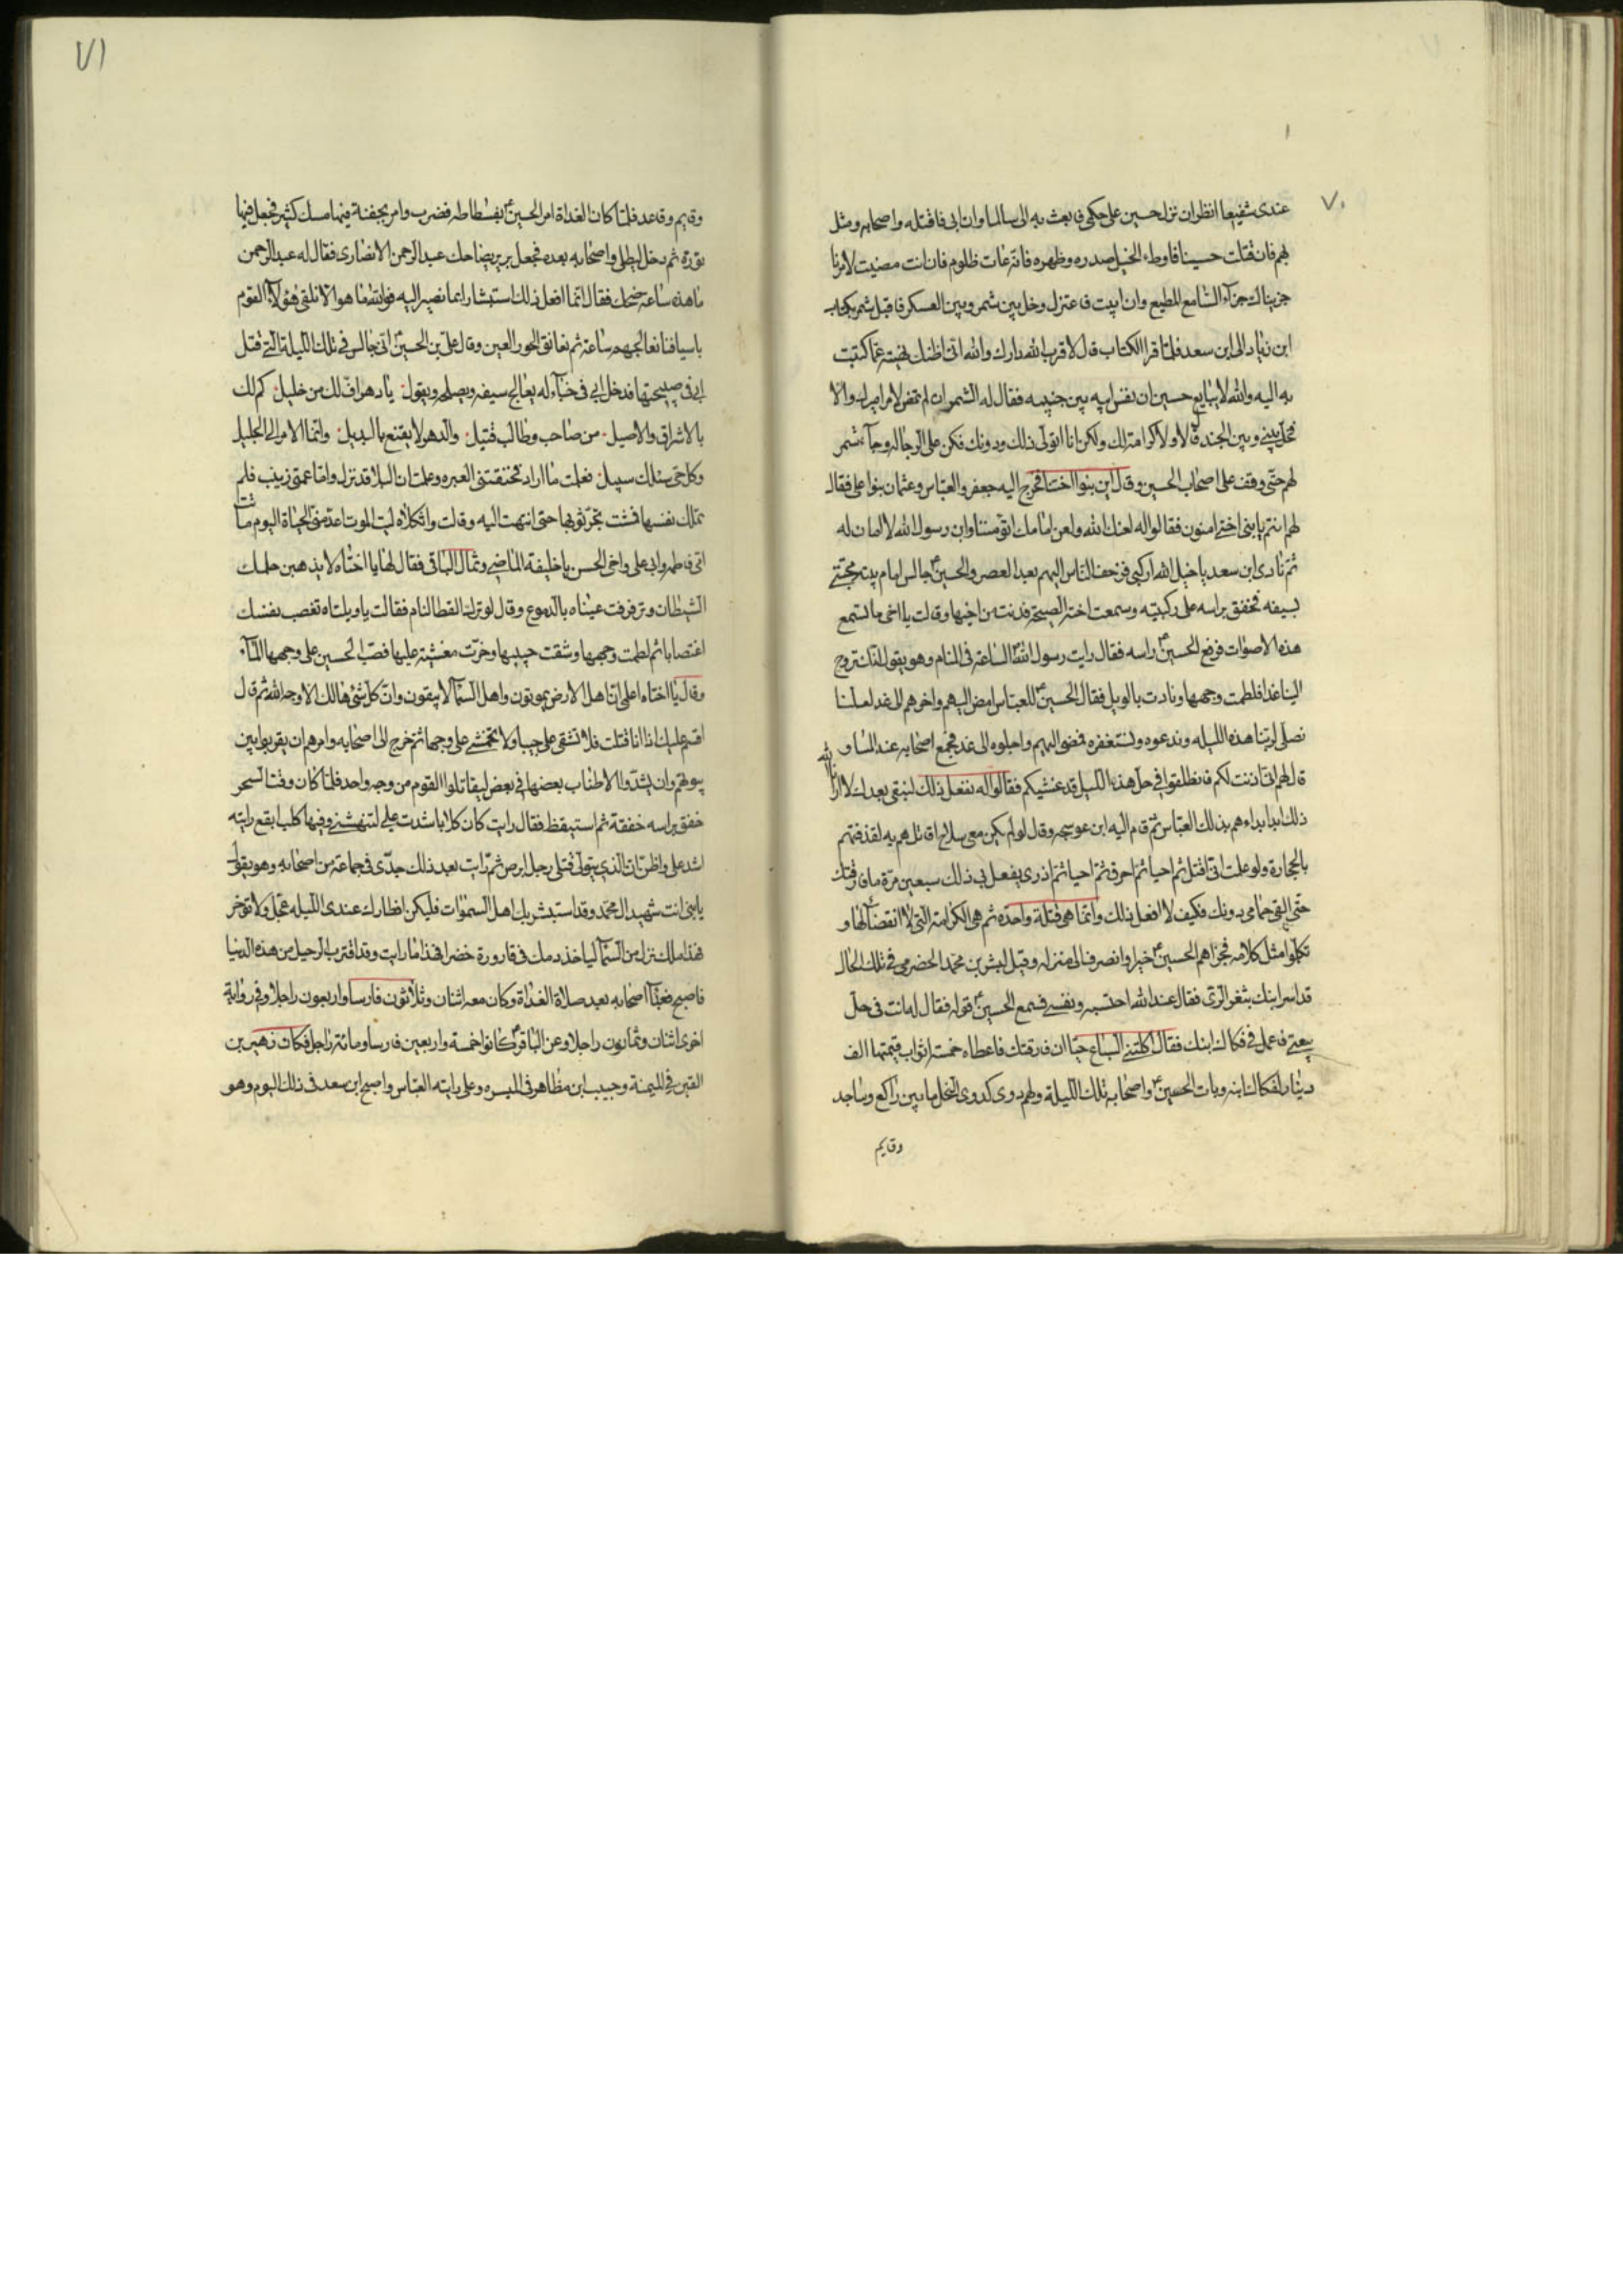 ٧٠
عندى شفيعا انظر ان نزل حسين على حكمى فابعث به الى سالما وان ابى فاقتله واصحابه ومثل
بهم فان قتلت حسينا فاوطء الخيل صدره وظهره فانه عات ظلوم فان انت مضيت لامرنا
جزيناك جزآء السّامع المطيع وان ابيت فاعتزل وخل بين شمر وبين العسكر فاقبل شمر بكتاب
ابن زياد الى ابن سعد فلمّا قرا الكتاب قال لا قرب الله دارك والله انى اظنك نهيته عمّا كتبت
به اليه والله لا يبايع حسين ان نفس ابيه بين جنبيه فقال له الشمر ان لم تمض لامر اميرك والّا
فخلّ بينى وبين الجند قال لا ولا كرامة لك ولكن انا اتولّى ذلك ودونك فكن على الرجاله وجآء شمر
لهم حتّى وقف على اصحاب الحسين وقال اين بنوا اختنا فخرج اليه جعفر والعبّاس وعثمان بنوا على فقال
لهم انتم يا بنى اختى امنون فقالوا له لعنك الله ولعن امامك اتؤمننا وابن رسول الله لا امان له
ثم نادى ابن سعد يا خيل الله اركبى فزحف النّاس اليهم بعد العصر والحسين ع جالس امام بيته محتبى
بسيفه فخفق براسه على ركبتيه وسمعت اخته الصيحة فدنت من اخيها وقالت يا اخى ما تسمع
هذه الاصوات فرفع الحسين ع راسه فقال رايت رسول الله ص الساعة فى المنام وهو يقول انّك تروح
الينا غدا فلطمت وجهها ونادت بالويل فقال الحسين ع للعبّاس امض اليهم واخرهم الى غد لعلّنا
نصلّى لربّنا هذه الليله وندعوه ونستغفره فمضى اليهم واجلوه الى غد فجمع اصحابه عند المسا و
قال لهم انى اذنت لكم فانطلقوا فى حل هذه الليل قد غشيكم فقالوا له نفعل ذلك لنبقى بعدك لا ارانا الله
ذلك ابدا بداءهم بذلك العبّاس ثم قام اليه ابن عوسجه وقال لو لم يكن معى سلاح اقاتلهم به لقذفتهم
بالحجارة ولو علمت انى اقتل ثم احيا ثم احرق ثم احيا ثم اذرى يفعل بى ذلك سبعين مرّة ما فارقتك
حتّى القى حمامى دونك فكيف لا افعل ذلك وانّما هى قتلة واحدة ثم هى الكرامة التى لا انقضآء لها و
تكلّموا مثل كلامه فجزاهم الحسين ع خيرا وانصرف الى منزله وقيل لبشر بن محمد الحضرمى فى تلك الحال
قد اسر ابنك بثغر الرّى فقال عند الله احتسبه ونفسى فسمع الحسين ع قوله فقال له انت فى حلّ
بيعتى فاعمل فى فكاك ابنك فقال اكلتنى السّباع حيّا ان فارقتك فاعطاه خمسة اثواب قيمتها الف
دينار لفكاك ابنه وبات الحسين ع واصحابه تلك الليلة ولهم دوى كدوى النحل ما بين راكع وساجد
وقايم
٧١
وقايم وقاعد فلمّا كان الغداة امر الحسين ع بفسطاطه فضرب وامر بجفنة فيها مسك كثير فجعل فيها
نورة ثم دخل ليطلى واصحابه بعده فجعل برير يضاحك عبد الرّحمن الانصارى فقال له عبد الرّحمن
ما هذه ساعة ضحك فقال انّما افعل ذلك استبشارا بما نصير اليه فوالله ما هو الّا نلقى هؤلآء القوم
باسيافنا نعالجهم ساعة ثم نعانق الحور العين وقال علىّ بن الحسين ع انى جالس فى تلك الليلة الّتى قتل
ابى فى صبيحتها فدخل ابى فى خبآء له يعالج سيفه ويصلحه ويقول يا دهر افّ لك من خليل كم لك
بالاشراق والاصيل من صاحب وطالب قتيل والدهر لا يقنع بالبديل وانّما الامر الى الجليل
وكل حى سالك سبيل فعلمت ما اراد فخنقتنى العبره وعلمت ان البلا قد نزل وامّا عمتى زينب فلم
تملك نفسها فمشت تجرّ ثوبها حتى انتهت اليه وقالت واثكلاه ليت الموت اعدمنى الحياة اليوم ماتت
امى فاطمه وابى على واخى الحسن يا خليفة الماضى وثمال الباقى فقال لها يا اختاه لا يذهبن حلمك
الشيطان وترقرقت عيناه بالدموع وقال لو ترك القطا لنام فقالت يا ويلتاه تغصب نفسك
اغتصابا ثم لطمت وجهها وشقت جيبها وخرّت مغشية عليها فصبّ الحسين على وجهها المآء
وقال يا اختاه اعلمى انّ اهل الارض يموتون واهل السّمآء لا يبقون وانّ كلّ شئ هالك الّا وجه الله ثم قال
اقسم عليك اذا انا قتلت فلا تشقى علىّ جيبا ولا تخمشى على وجها ثم خرج الى اصحابه وامرهم ان يقربوا بين
بيوتهم وان يشدّوا الاطناب بعضها فى بعض ليقاتلوا القوم من وجه واحد فلمّا كان وقت السّحر
خفق براسه خفقة ثم استيقظ فقال رايت كان كلابا شدت على لتنهشنى وفيها كلب ابقع رايته
اشد على واظن ان الّذى يتولّى قتلى رجل ابرص ثم رايت بعد ذلك جدّى فى جماعة من اصحابه وهو يقول
يا بنى انت شهيد ال محمّد وقد استبشر بك اهل السّموات فليكن افطارك عندى الليله عجّل ولا تؤخر
فهذا ملك نزل من السّمآء لياخذ دمك فى قارورة خضرا فهذا ما رايت وقد اقترب الرّحيل من هذه الدنيا
فاصبح فعبّآ اصحابه بعد صلاة الغداة وكان معه اثنان وثلاثون فارسا واربعون راجلا وفى رواية
اخرى اثنان وثمانون راجلا وعن الباقر ع كانوا خمسة واربعين فارسا ومائة راجل فكان زهير بن
القين فى الميمنة وحبيب ابن مظاهر فى الميسره وعلى رايته العبّاس واصبح ابن سعد فى ذلك اليوم وهو